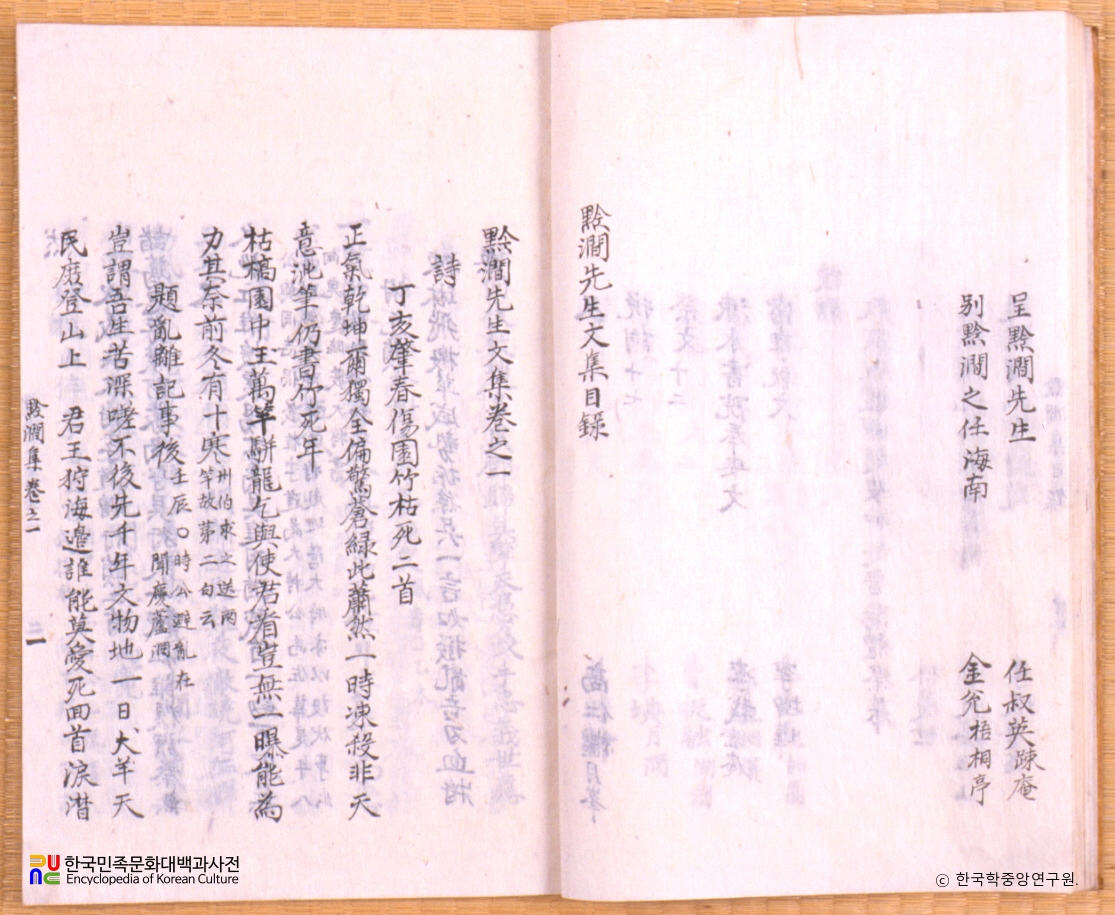 呈黔澗先生 任叔英踈庵
別黔澗之任海南 金允梧桐亭
黔澗先生文集目錄
黔澗先生文集卷之一
詩
丁亥肇春傷園竹枯死二首
正氣乾坤爾獨全偏驚蒼綠此蕭然一時凍殺非天
意泚筆仍書竹死年
枯槁園中玉萬竿騈龍乞與使君看豈無一曝能爲
力其奈前冬有十寒州伯求之送兩
竿故第二句云
題亂離記事後壬辰○時公避亂在
聞慶蘆洞
豈謂吾生苦深嗟不後先千年文物地一日犬羊天
民庶登山上 君王狩海邊誰能莫愛死回首淚潸
黔澗集卷之一
一
한국민족문화대백과사전
Encyclopedia of Korean Culture
ⓒ 한국학중앙연구원.